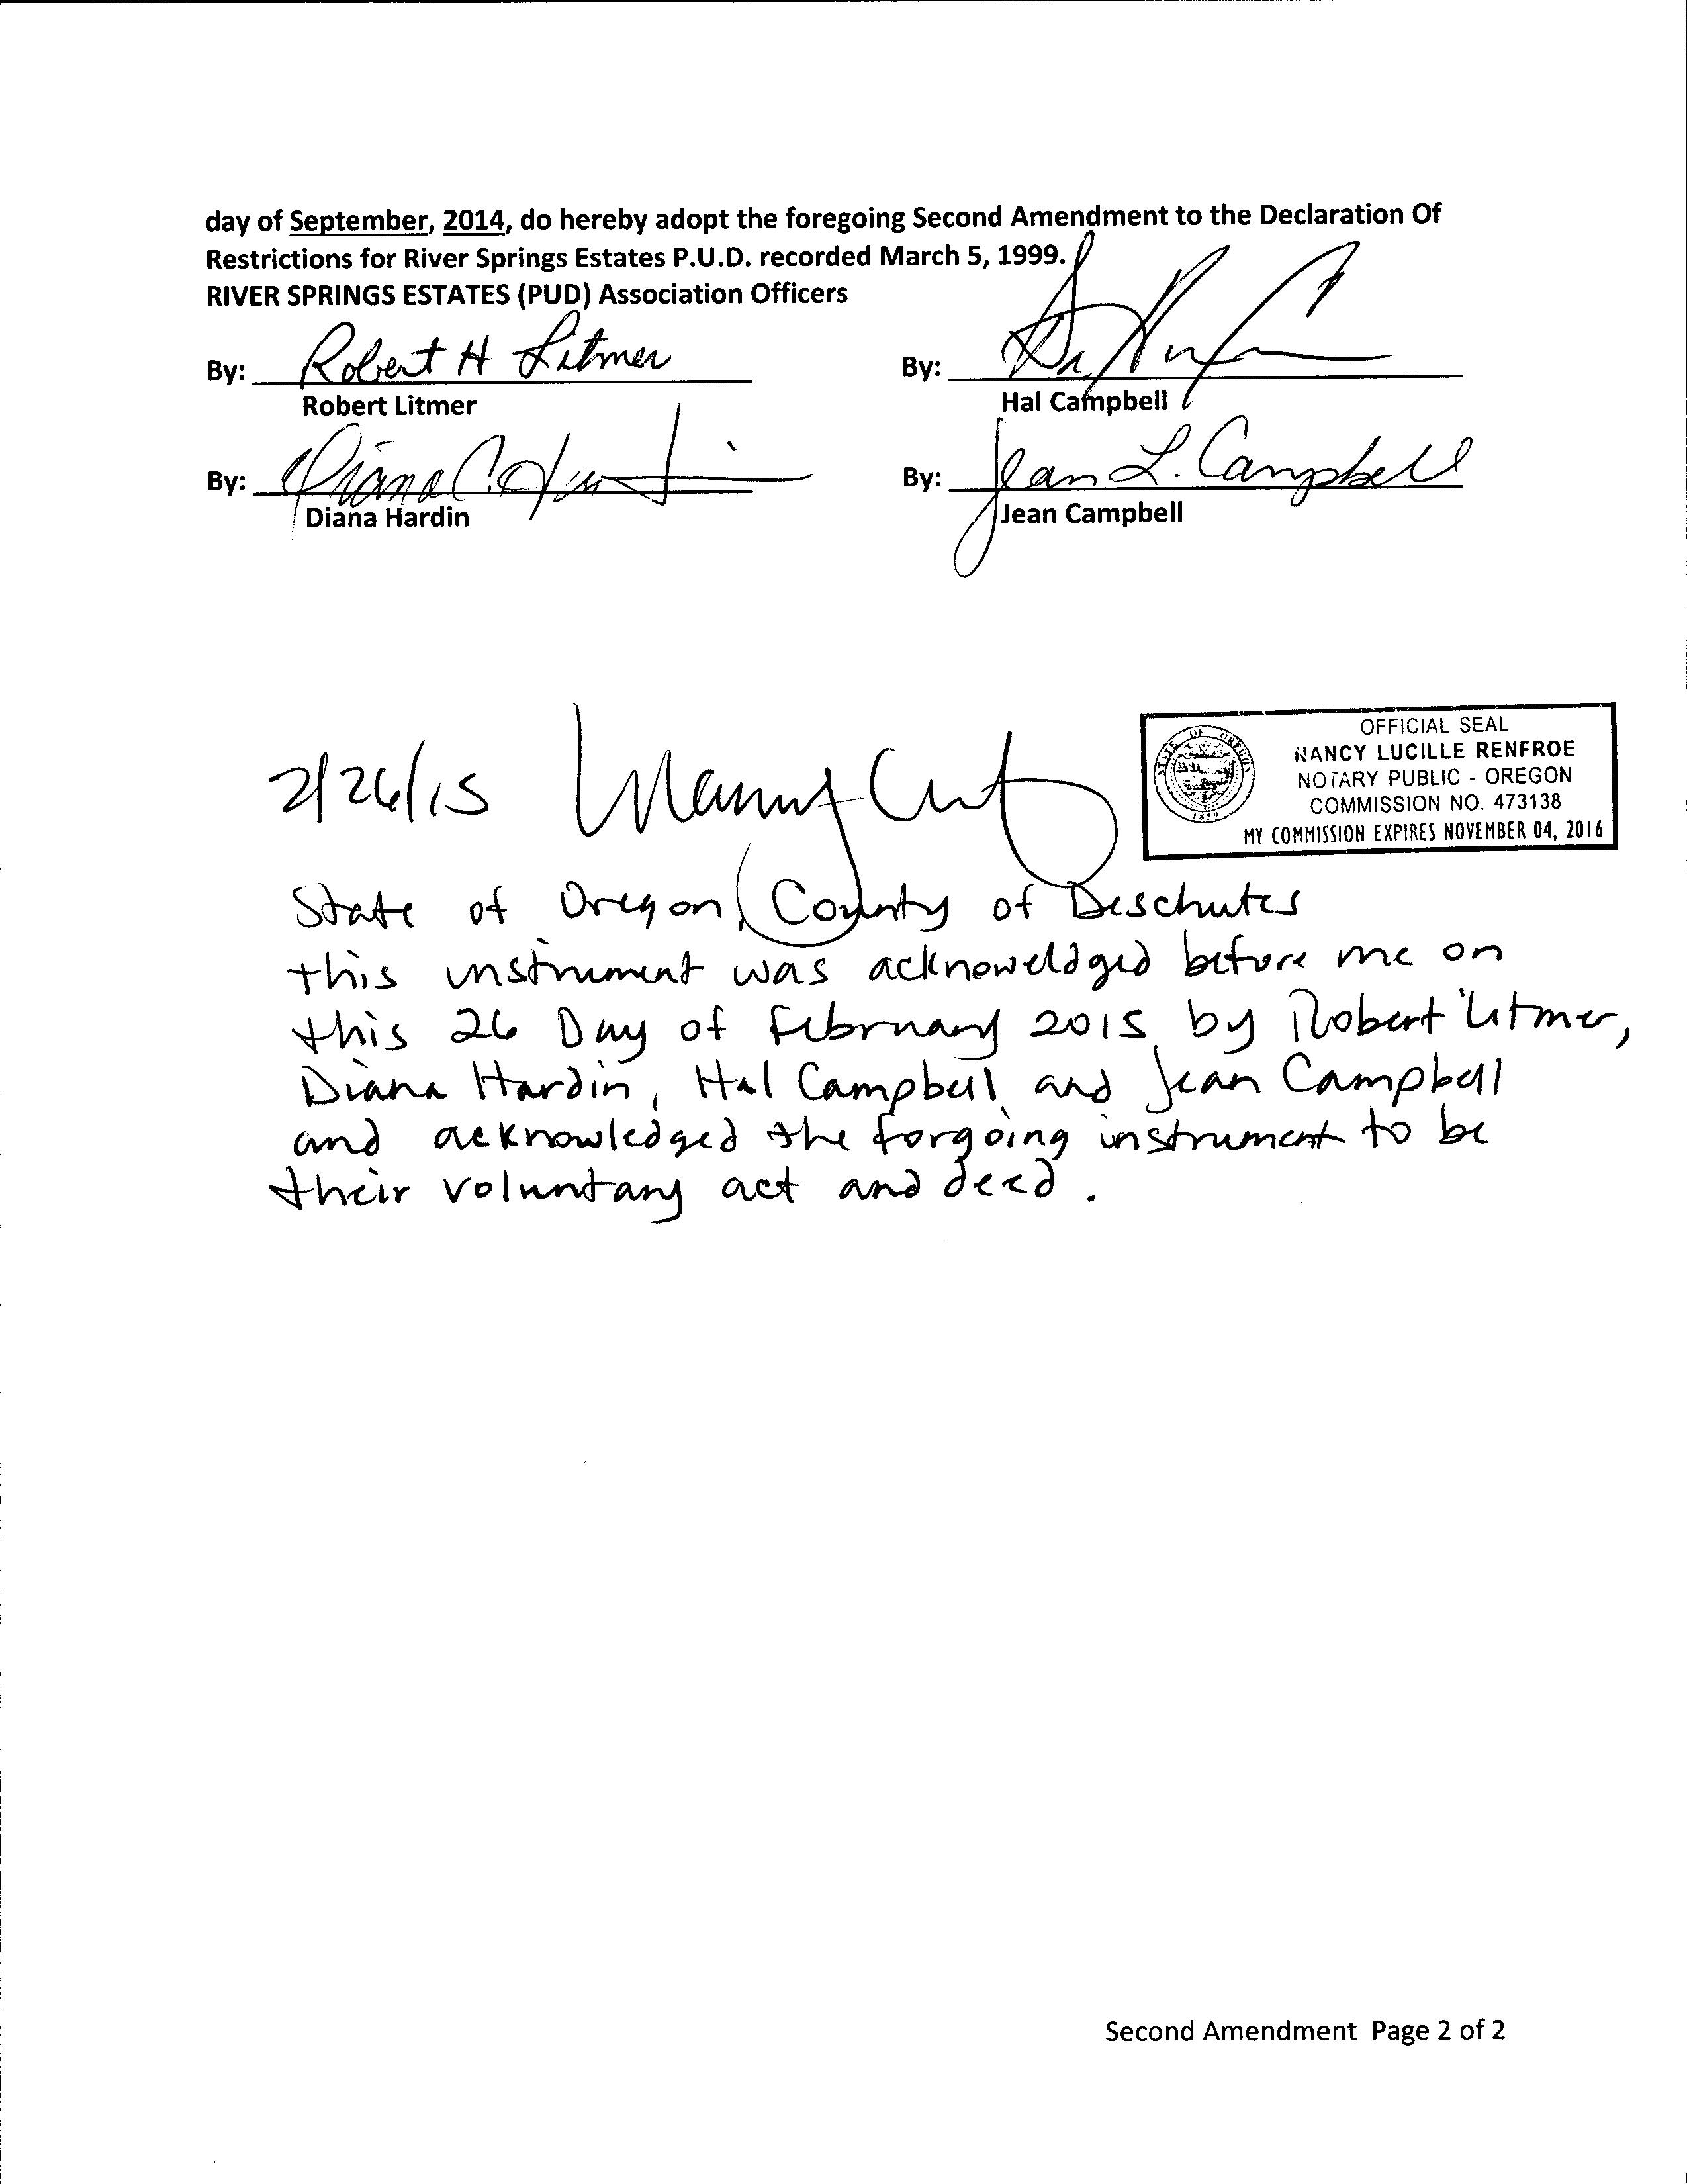 day of September, 2014, do hereby adopt the foregoing Second Amendment to the Declaration Of
Restrictions for River Springs Estates P.U.D. recorded March 5, 1999.
RIVER SPRINGS ESTATES (PUD) Association Officers
By: Robert H Litmer
By:
Robert Litmer
Hal Campbell
By: Diana C. Hardin
By: Jean L. Campbell
Diana Hardin
Jean Campbell
2/26/15
OFFICIAL SEAL
NANCY LUCILLE RENFROE
NOTARY PUBLIC - OREGON
COMMISSION NO. 473138
MY COMMISSION EXPIRES NOVEMBER 04, 2016
STATE OF OREGON
1859
State of Oregon, County of Deschutes
this instrument was acknoweldged before me on
this 26 Day of February 2015 by Robert Litmer,
Diana Hardin, Hal Campbell and Jean Campbell
and acknowledged the forgoing instrument to be
their voluntary act and deed.
Second Amendment Page 2 of 2